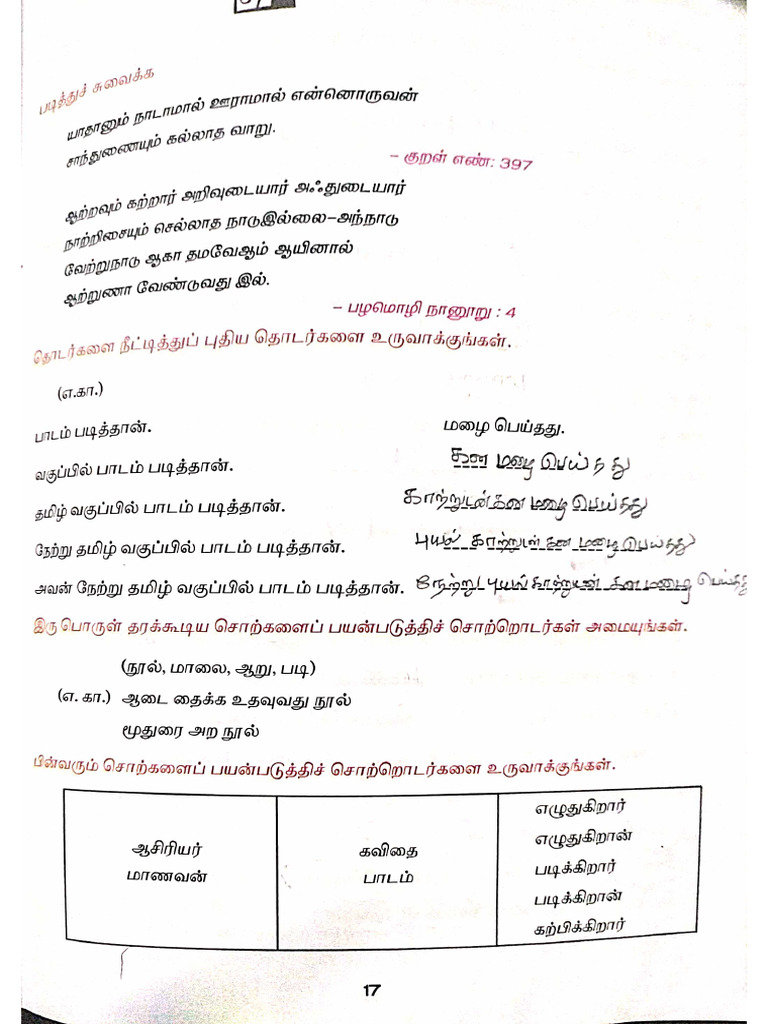 படித்துச் சுவைக்க
யாதானும் நாடாமால் ஊராமால் என்னொருவன்
சாந்துணையும் கல்லாத வாறு.
– குறள் எண்: 397
ஆற்றவும் கற்றார் அறிவுடையார் அஃதுடையார்
நாற்றிசையும் செல்லாத நாடுஇல்லை–அந்நாடு
வேற்றுநாடு ஆகா தமவேஆம் ஆயினால்
ஆற்றுணா வேண்டுவது இல்.
– பழமொழி நானூறு : 4
தொடர்களை நீட்டித்துப் புதிய தொடர்களை உருவாக்குங்கள்.
(எ.கா.)
பாடம் படித்தான். மழை பெய்தது.
வகுப்பில் பாடம் படித்தான். கன மழை பெய்தது
தமிழ் வகுப்பில் பாடம் படித்தான். காற்றுடன் கன மழை பெய்தது
நேற்று தமிழ் வகுப்பில் பாடம் படித்தான். புயல் காற்றுடன் கன மழை பெய்தது
அவன் நேற்று தமிழ் வகுப்பில் பாடம் படித்தான். நேற்று புயல் காற்றுடன் கன மழை பெய்தது
இரு பொருள் தரக்கூடிய சொற்களைப் பயன்படுத்திச் சொற்றொடர்கள் அமையுங்கள்.
(நூல், மாலை, ஆறு, படி)
(எ. கா.) ஆடை தைக்க உதவுவது நூல்
மூதுரை அற நூல்
பின்வரும் சொற்களைப் பயன்படுத்திச் சொற்றொடர்களை உருவாக்குங்கள்.
ஆசிரியர்
மாணவன்
கவிதை
பாடம்
எழுதுகிறார்
எழுதுகிறான்
படிக்கிறார்
படிக்கிறான்
கற்பிக்கிறார்
17